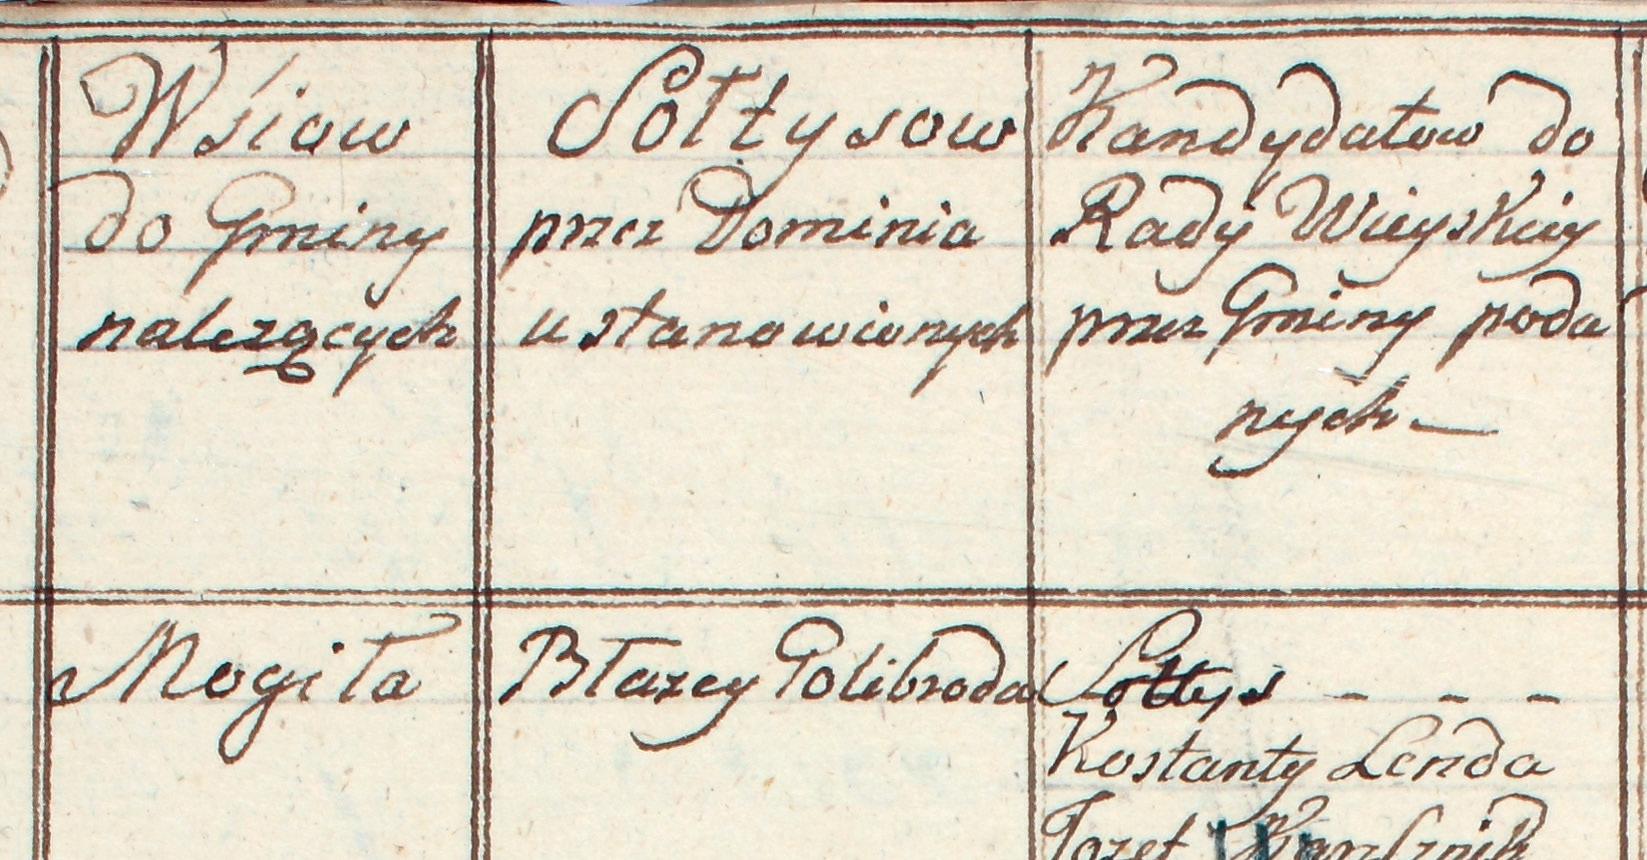 Wsiow
do Gminy
nalezących
Sołtysow
przez Dominia
ustanowionych
Kandydatow do
Rady Wieyskiey
przez Gminy poda
nych —
Mogiła
Błazey Golibroda
Sołtys - - -
Kostanty Lenda
Jozef